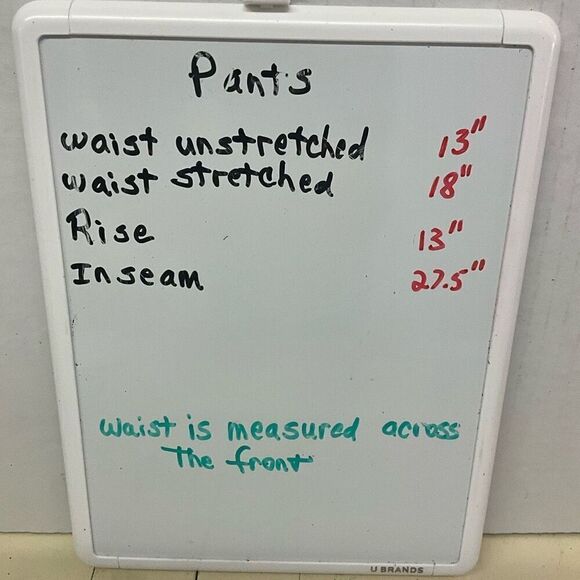 Pants
waist unstretched 13"
waist stretched 18"
Rise 13"
Inseam 27.5"
waist is measured across
The front
U BRANDS